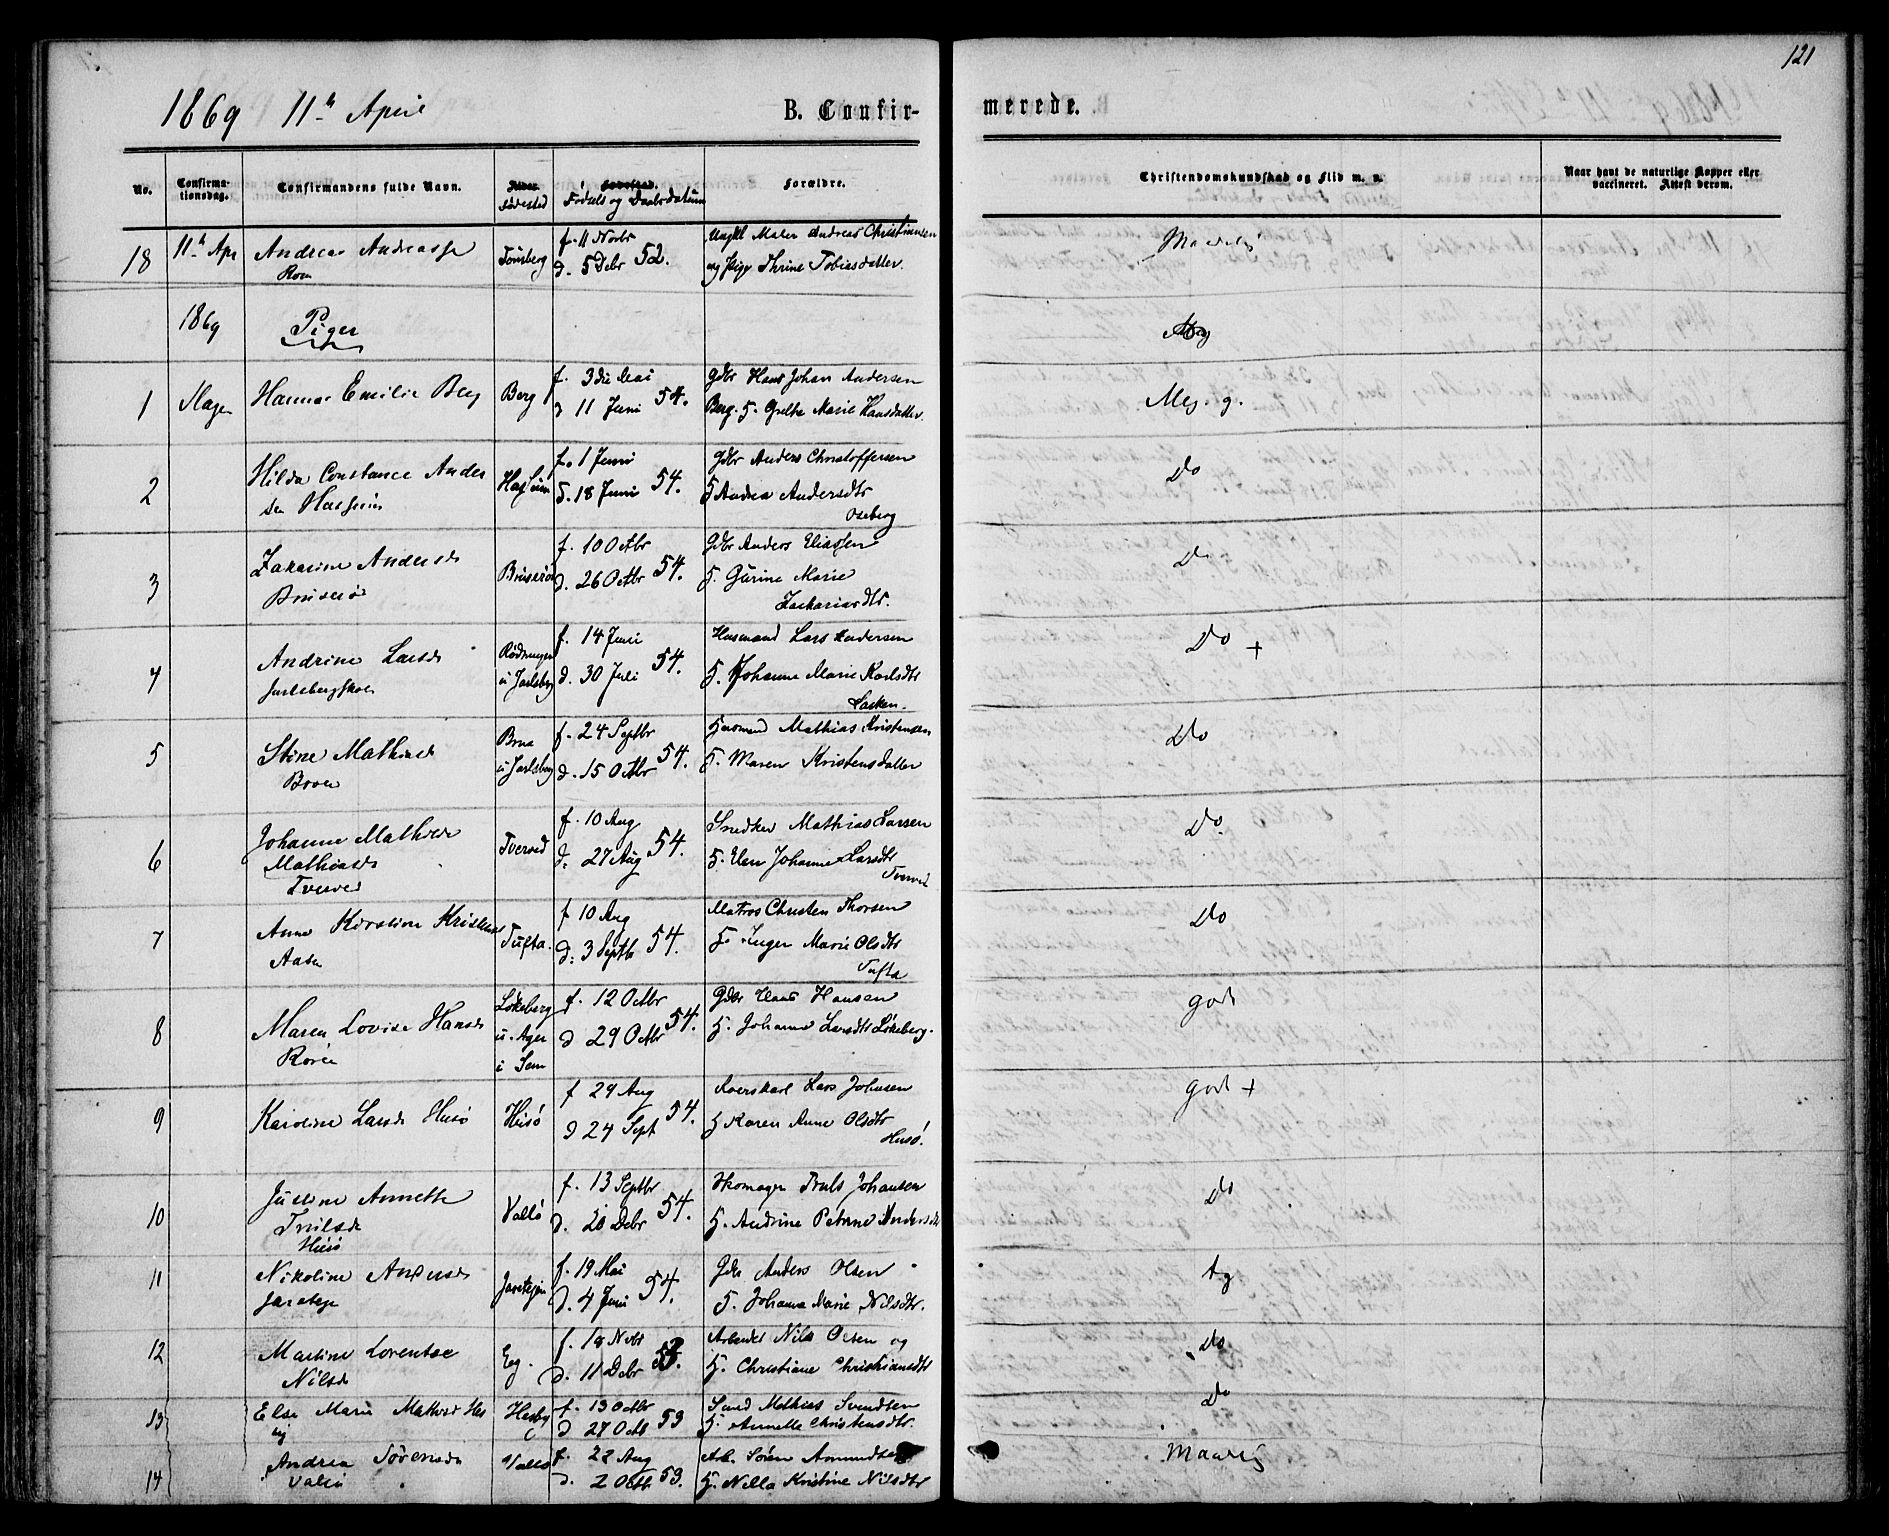 121
1869 11te April
B. Confir-
merede.
No.
Confirma-
tionsdag.
Confirmandens fulde Navn.
Alder.
Fødested
Fødested.
Føduls og Daabsdatum
Forældre.
Christendomskundskab og Flid m. v.
Naar havt de naturlige Kopper eller
vaccineret. Attest derom.
18 11te Apr Andreas Andreassen Tønsberg f. 11 Novbr Ungkl Maler Andreas Christiansen Maadelig
d. 5 Debr 52. og Pige Thrine Tobiasdatter.
1869 Piger
1 Slagen Hanna Emilie Berg Berg f. 3die Mai Gdbr Hans Johan Andersen Meg. g.
d 11 Juni 54. Berg. H. Grethe Marie Hansdatter.
2 Hilda Constance Ander f. 1 Juni Gdbr Anders Christoffersen Do
sen 18 Juni 54. H Andrea Andersdtr
Oseberg
3 Zakarine Andersd Bruserø f. 10 Octbr Gdbr Anders Eliassen Do
Bruserø d. 26 Octbr 54. H. Gurine Marie
Zachariasdtr.
4 Andrine Larsd f. 14 Juni Husmand Lars Andersen Do +
Jarlsberg d. 30 Juli 54. H. Johanne Marie Karlsdtr
5 Stine Mathisd f. 24 Septbr Husmand Mathias Kristensen Do
u Jarlsberg d. 15 Octbr 54. H. Maren Kristensdatter
6 Johanne Mathilde Tverved f. 10 Aug Snedker Mathias Larsen Do.
Mathiasd d. 27 Aug 54. H. Elen Johanne Larsdtr
Tverved Tverved
7 Anne Kirstine Kristensd Tufta. f 10 Aug Matros Christen Thorsen Do
Aasen d. 3 Septb 54. H. Inger Marie Olsdtr
Tufta
8 Maren Lovise Hansd Løkeberg f. 12 Octbr Gdbr Hans Hansen god
u. Ager d 29 Octbr 54. H. Johanne Larsdtr Løkeberg.
i Sem
9 Karoline Larsd Husø Husø f 29 Aug Lars Johnsen god +
d 24 Sept 54. H Karen Anne Olsdtr
Husø.
10 Justine Annette Vallø f. 13 Septbr Skomager Truls Johansen Do
Trulsd d. 20 Debr 54. H. Andrine Petrine Andersdtr
Husø
11 Nikoline Andersd f. 19 Mai Gdbr Anders Olsen tg
d. 4 Juni 54. H. Johanne Marie Nilsdtr.
12 Martine Lorentse Eeg. f. 18 Novbr Arbeider Nils Olsen og Do
Nilsd d. 11 Debr 53. H. Christiane Christiansdtr
13 Else Marie Mathisd Hes Hesby f. 13 Octbr Mathias Svendsen Do
by d 27 Octb 53 H. Annette Christensdtr.
14 Andrea Sørensd Vallø f. 22 Aug Arb. Søren Amundsen Maadelig
Vallø d. 2 Octb 53. H. Nella Kristine Nilsdtr